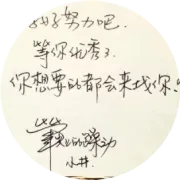 好好努力吧.
等你优秀了.
你想要的都会来找你.
的躁动
小井.